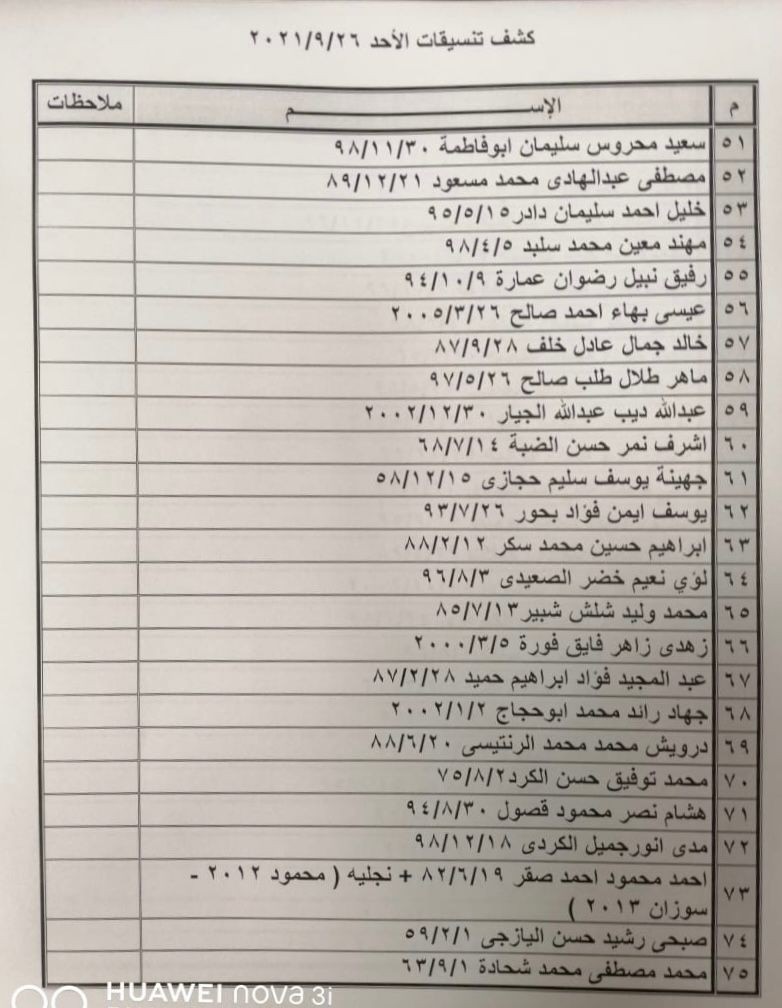 كشف تنسيقات الأحد ٢٠٢١/٩/٢٦
م الإســــــم ملاحظات
٥١ سعيد محروس سليمان ابوفاطمة ٩٨/١١/٣٠
٥٢ مصطفى عبدالهادى محمد مسعود ٨٩/١٢/٢١
٥٣ خليل احمد سليمان دادر ٩٥/٥/١٥
٥٤ مهند معين محمد سلبد ٩٨/٤/٥
٥٥ رفيق نبيل رضوان عمارة ٩٤/١٠/٩
٥٦ عيسى بهاء احمد صالح ٢٠٠٥/٣/٢٦
٥٧ خالد جمال عادل خلف ٨٧/٩/٢٨
٥٨ ماهر طلال طلب صالح ٩٧/٥/٢٦
٥٩ عبدالله ديب عبدالله الجيار ٢٠٠٢/١٢/٣٠
٦٠ اشرف نمر حسن الضبة ٦٨/٧/١٤
٦١ جهينة يوسف سليم حجازى ٥٨/١٢/١٥
٦٢ يوسف ايمن فؤاد بحور ٩٣/٧/٢٦
٦٣ ابراهيم حسين محمد سكر ٨٨/٢/١٢
٦٤ لؤي نعيم خضر الصعيدى ٩٦/٨/٣
٦٥ محمد وليد شلش شبير ٨٥/٧/١٣
٦٦ زهدى زاهر فايق فورة ٢٠٠٠/٣/٥
٦٧ عبد المجيد فؤاد ابراهيم حميد ٨٧/٢/٢٨
٦٨ جهاد رائد محمد ابوحجاج ٢٠٠٢/١/٢
٦٩ درويش محمد محمد الرنتيسى ٨٨/٦/٢٠
٧٠ محمد توفيق حسن الكرد ٧٥/٨/٢
٧١ هشام نصر محمود قصول ٩٤/٨/٣٠
٧٢ مدى انورجميل الكردى ٩٨/١٢/١٨
٧٣ احمد محمود احمد صقر ٨٢/٦/١٩ + نجليه ( محمود ٢٠١٢ -
سوزان ٢٠١٣ )
٧٤ صبحى رشيد حسن اليازجى ٥٩/٢/١
٧٥ محمد مصطفى محمد شحادة ٦٣/٩/١
HUAWEI nova 3i